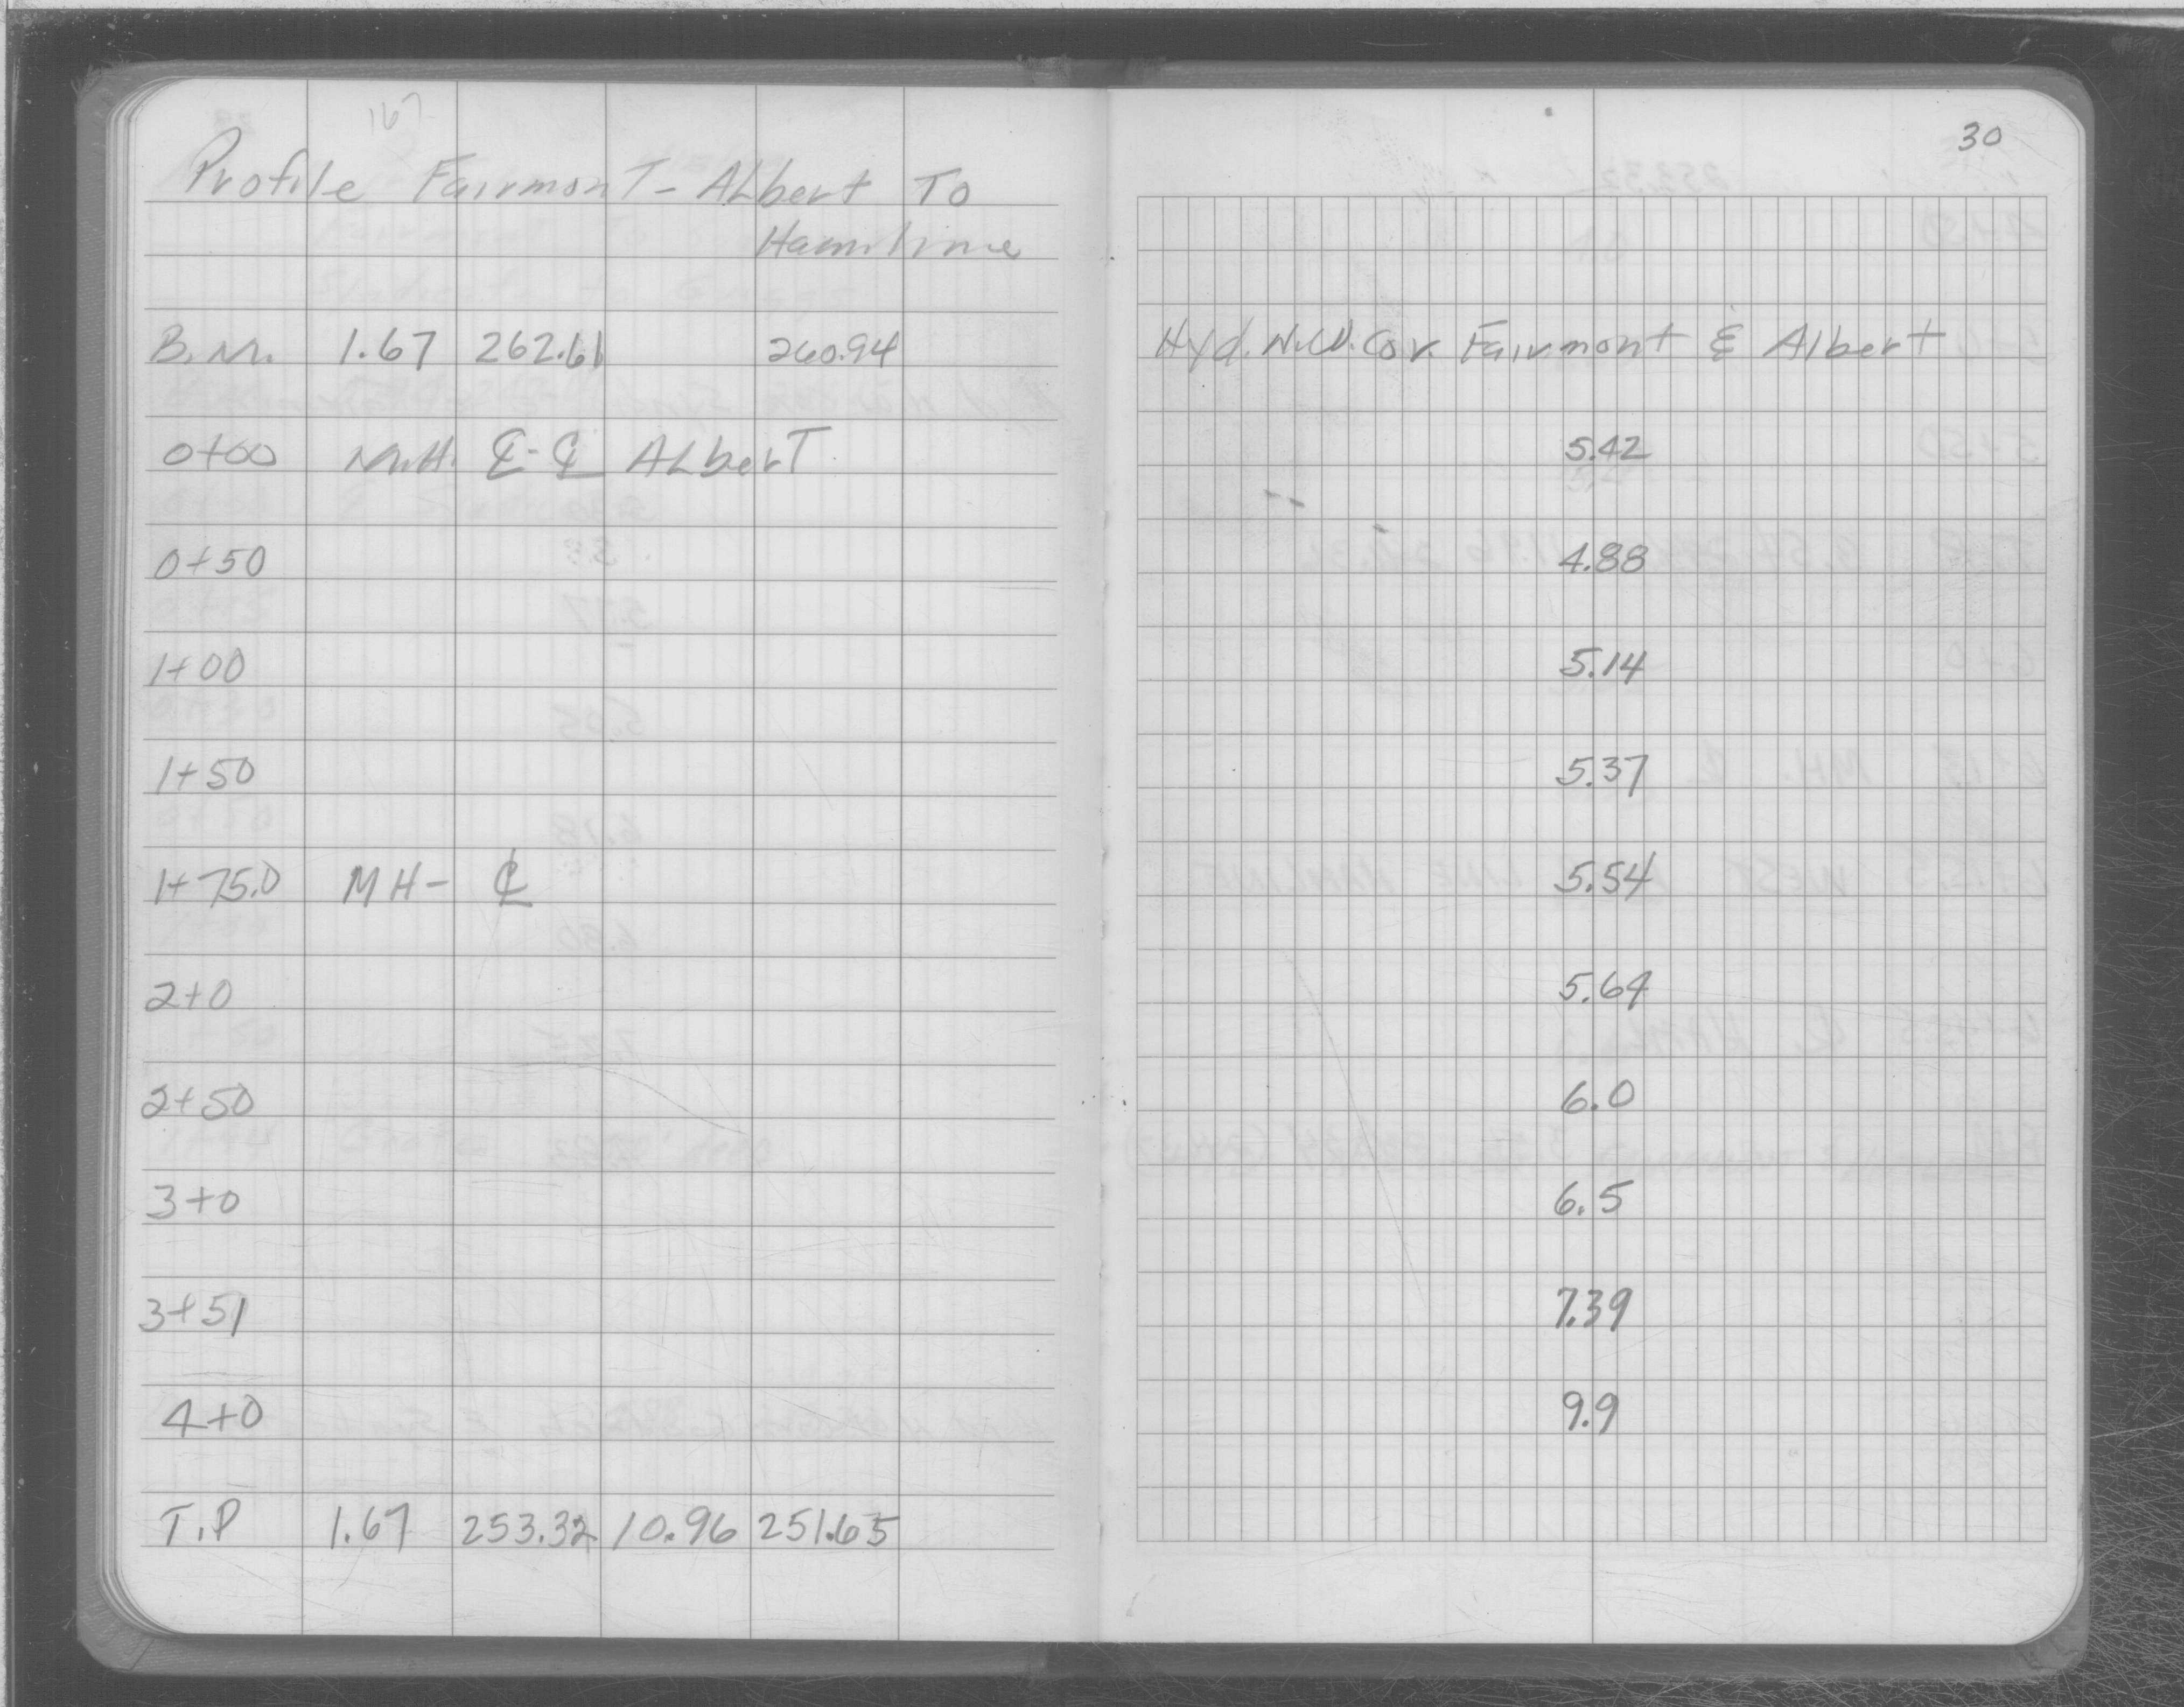 167
30
Profile Fairmont - Albert To
Hamline
B.M. 1.67 262.61 260.94 Hyd. N.W. Cor. Fairmont & Albert
0+00 M.H. ℄-℄ Albert 5.42
0+50 4.88
1+00 5.14
1+50 5.37
1+75.0 MH- ℄ 5.54
2+0 5.64
2+50 6.0
3+0 6.5
3+51 7.39
4+0 9.9
T.P 1.67 253.32 10.96 251.65